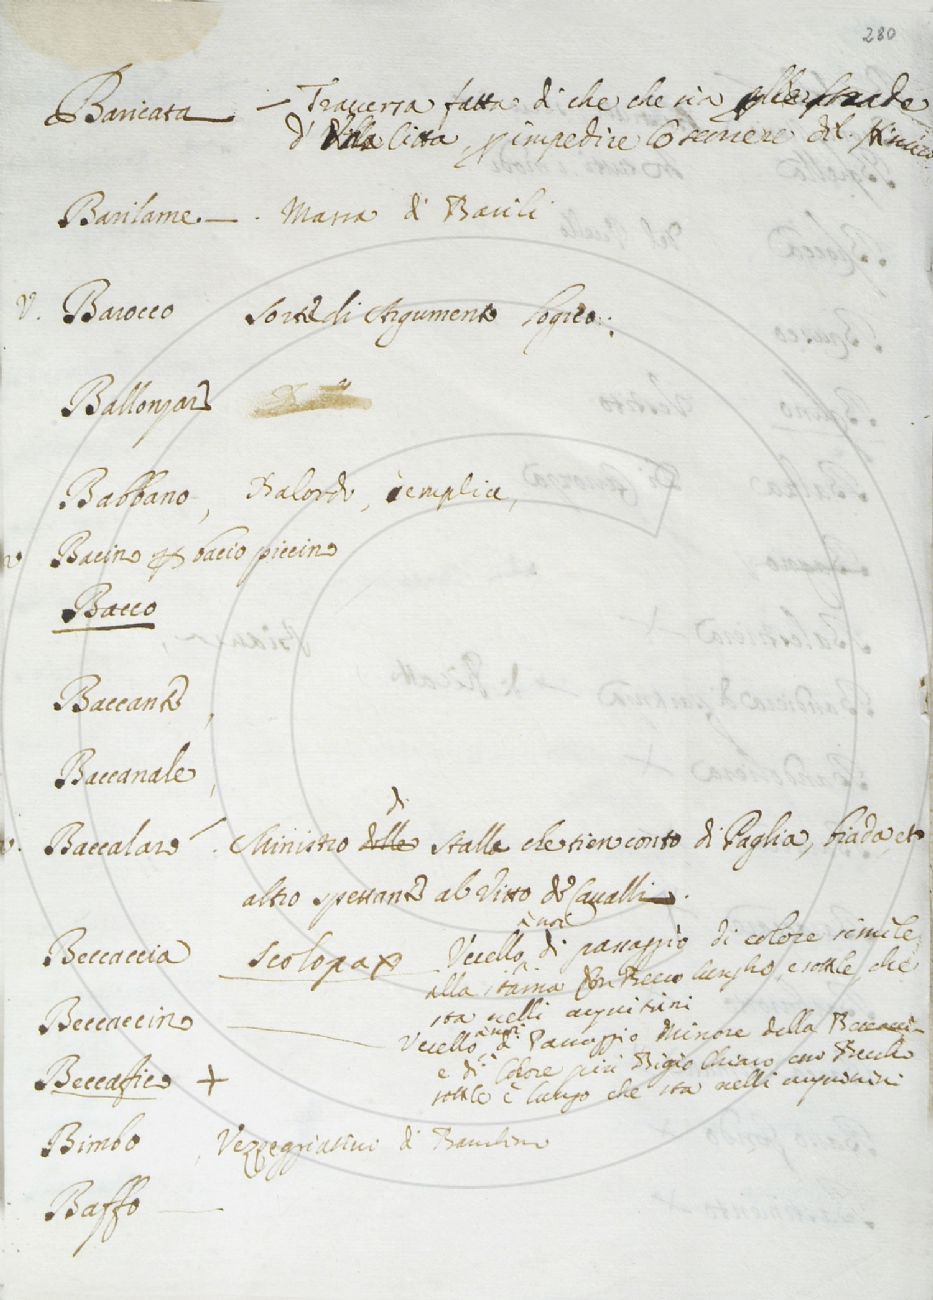 280
Baricata — Traversa fatta di che che sia strade
d' Citta, p impedire lo scorrere del
Barilame — . Massa di Barili
V. Barocco Sorte di Argumento Logico.
Ballonzare
Babbano, Balordo, semplice,
v Bacino bacio piccino
Bacco
Baccante,
Baccanale,
v. Baccalare . Ministro delle di stalle che tien conto di Paglia, biada, et
altro spettante al Vitto de Cavalli.
Beccaccia Scolopax Vccello di passaggio di colore simile
alla starna con Becco lungho, e sottile, che
sta nelli aquitrini
Beccaccino — Vccello di Passaggio minore della Beccaccia
e di Colore più Bigio chiaro con Becco
sottile e lungo che sta nelli aquitrini
Beccafico +
Bimbo , Vezzeggiativo di Bambino
Baffo —